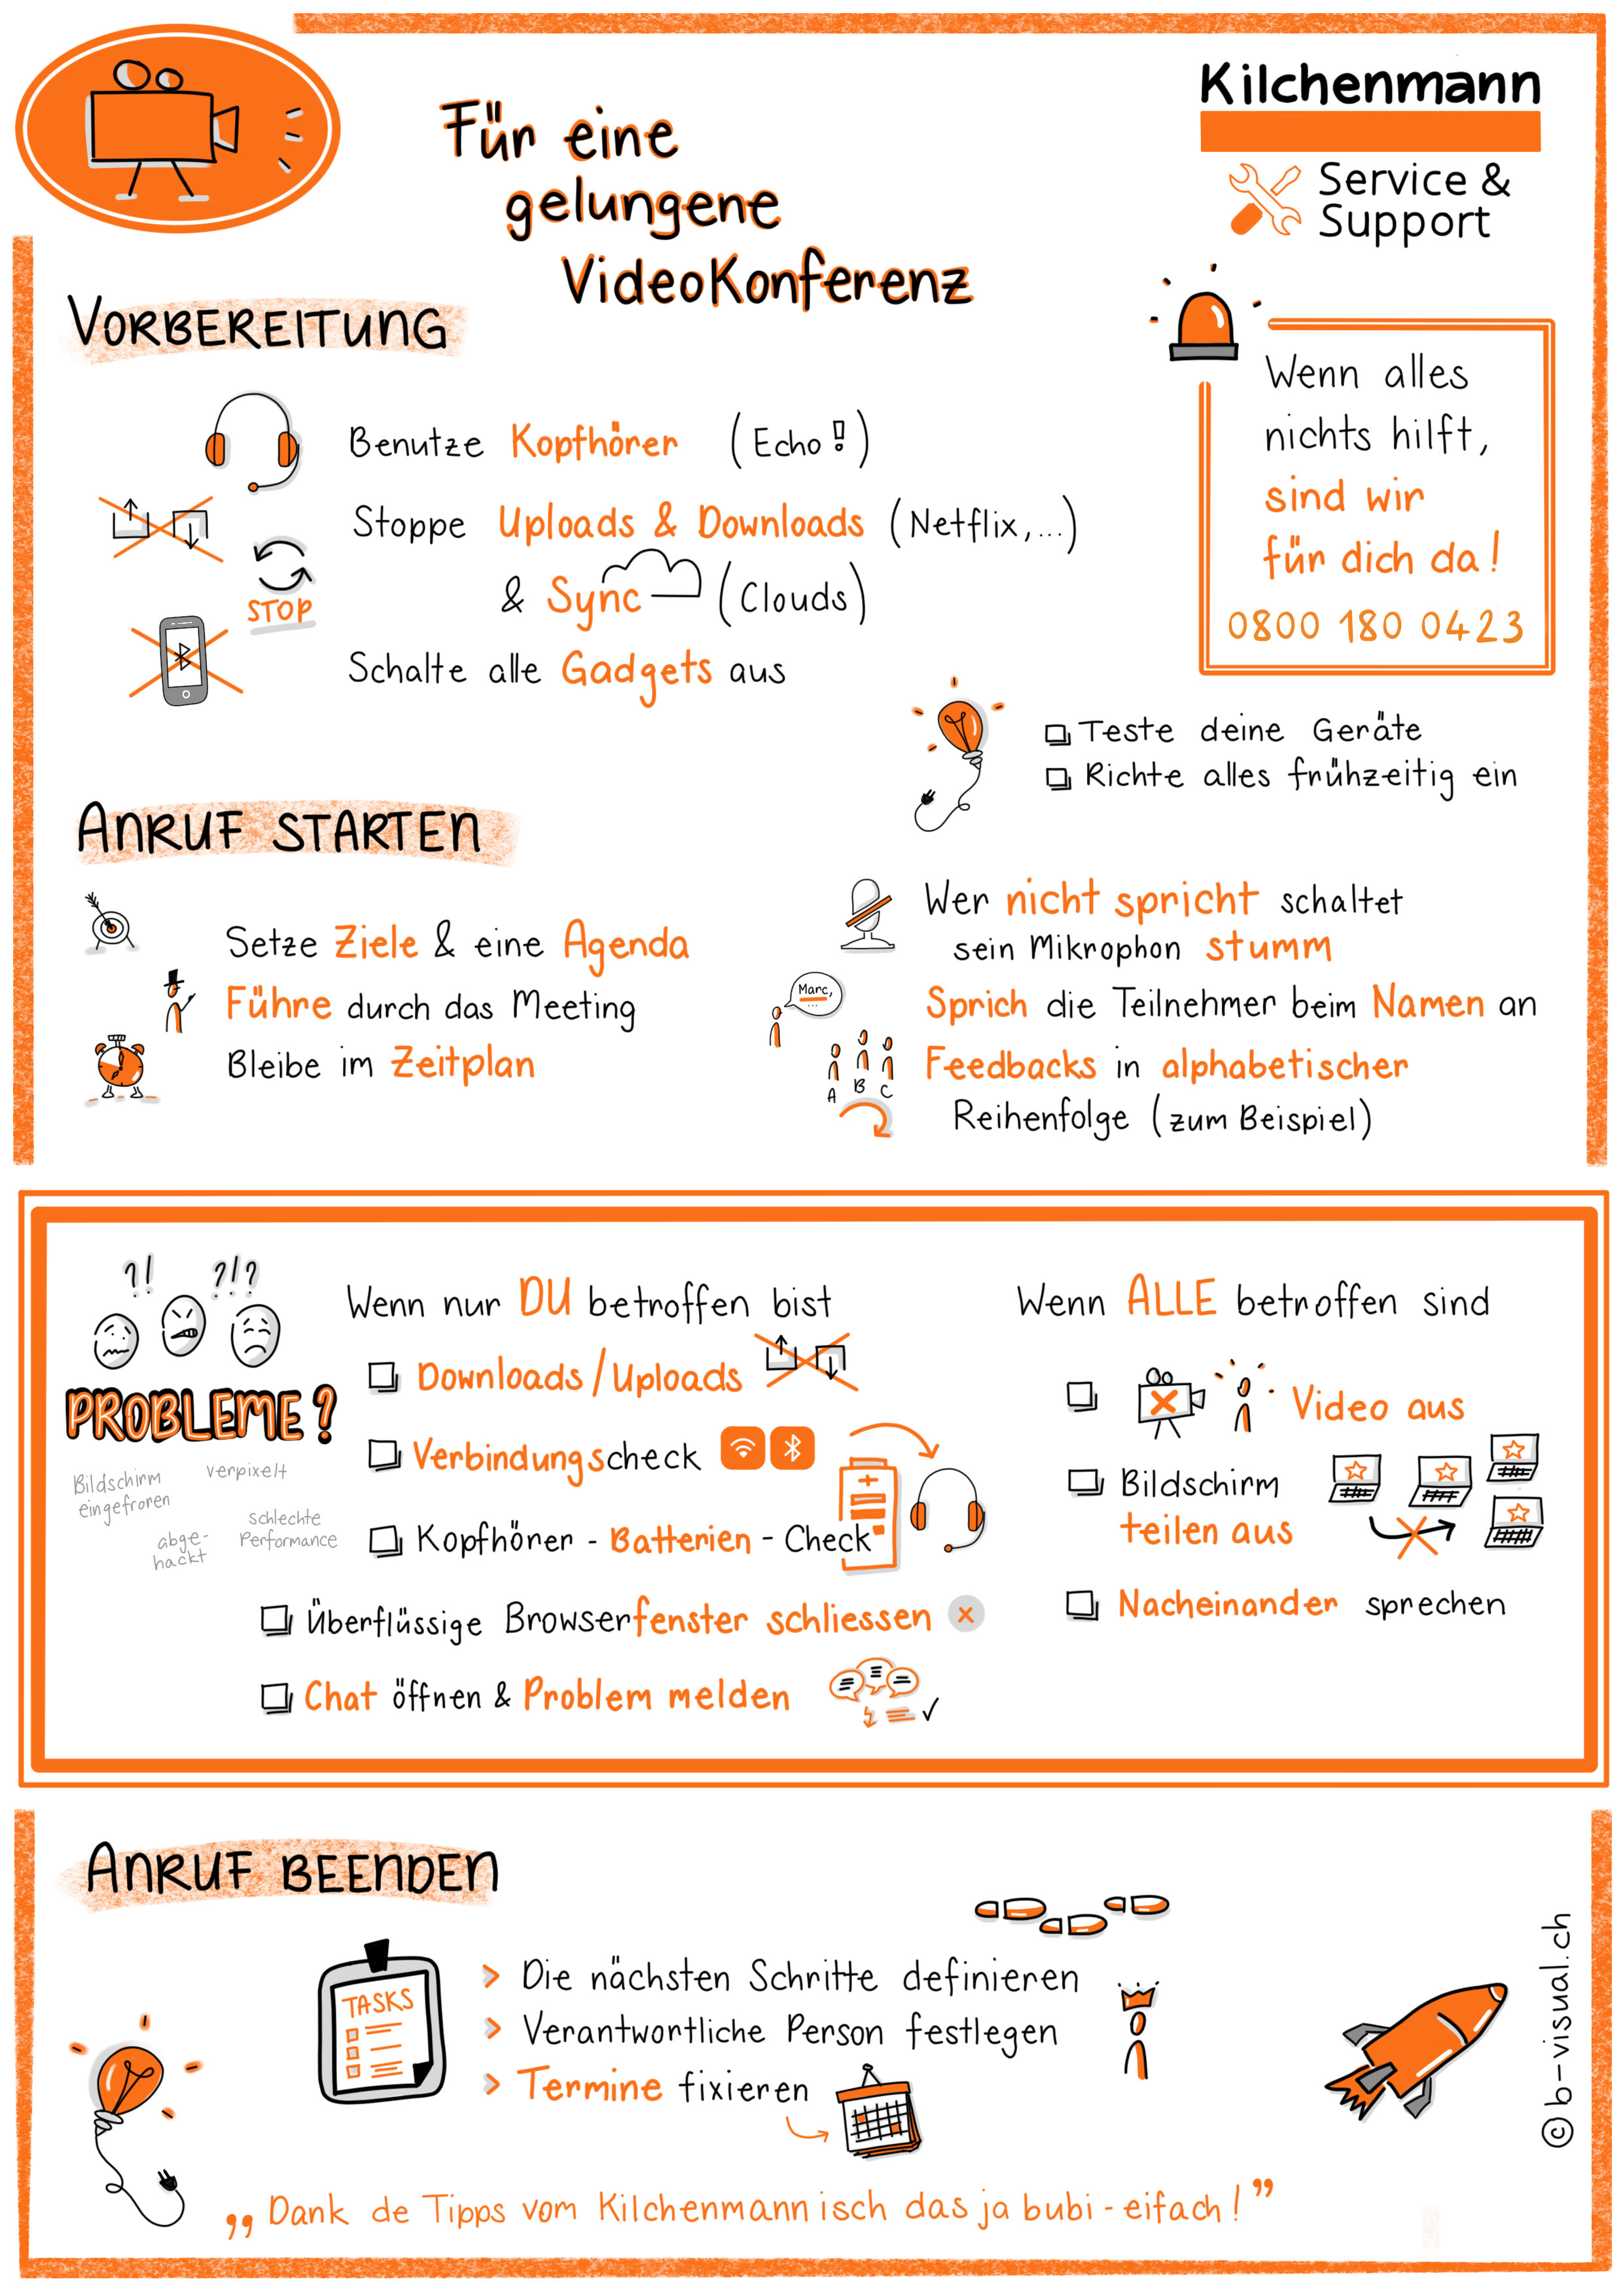 Für eine
gelungene
VideoKonferenz
Kilchenmann
Service &
Support
VORBEREITUNG
Benutze Kopfhörer (Echo!)
Stoppe Uploads & Downloads (Netflix,...)
& Sync (Clouds)
STOP
Schalte alle Gadgets aus
Wenn alles
nichts hilft,
sind wir
für dich da!
0800 180 0423
Teste deine Geräte
Richte alles frühzeitig ein
ANRUF STARTEN
Setze Ziele & eine Agenda
Führe durch das Meeting
Bleibe im Zeitplan
Wer nicht spricht schaltet
sein Mikrophon stumm
Marc,
...
Sprich die Teilnehmer beim Namen an
Feedbacks in alphabetischer
Reihenfolge (zum Beispiel)
A B C
?! ?!?
PROBLEME?
Bildschirm
eingefroren
verpixelt
abge-
hackt
schlechte
Performance
Wenn nur DU betroffen bist
Downloads/Uploads
Verbindungscheck
Kopfhörer - Batterien - Check
Überflüssige Browserfenster schliessen
Chat öffnen & Problem melden
Wenn ALLE betroffen sind
Video aus
Bildschirm
teilen aus
Nacheinander sprechen
ANRUF BEENDEN
TASKS
> Die nächsten Schritte definieren
> Verantwortliche Person festlegen
> Termine fixieren
„Dank de Tipps vom Kilchenmann isch das ja bubi-eifach!”
© b-visual.ch